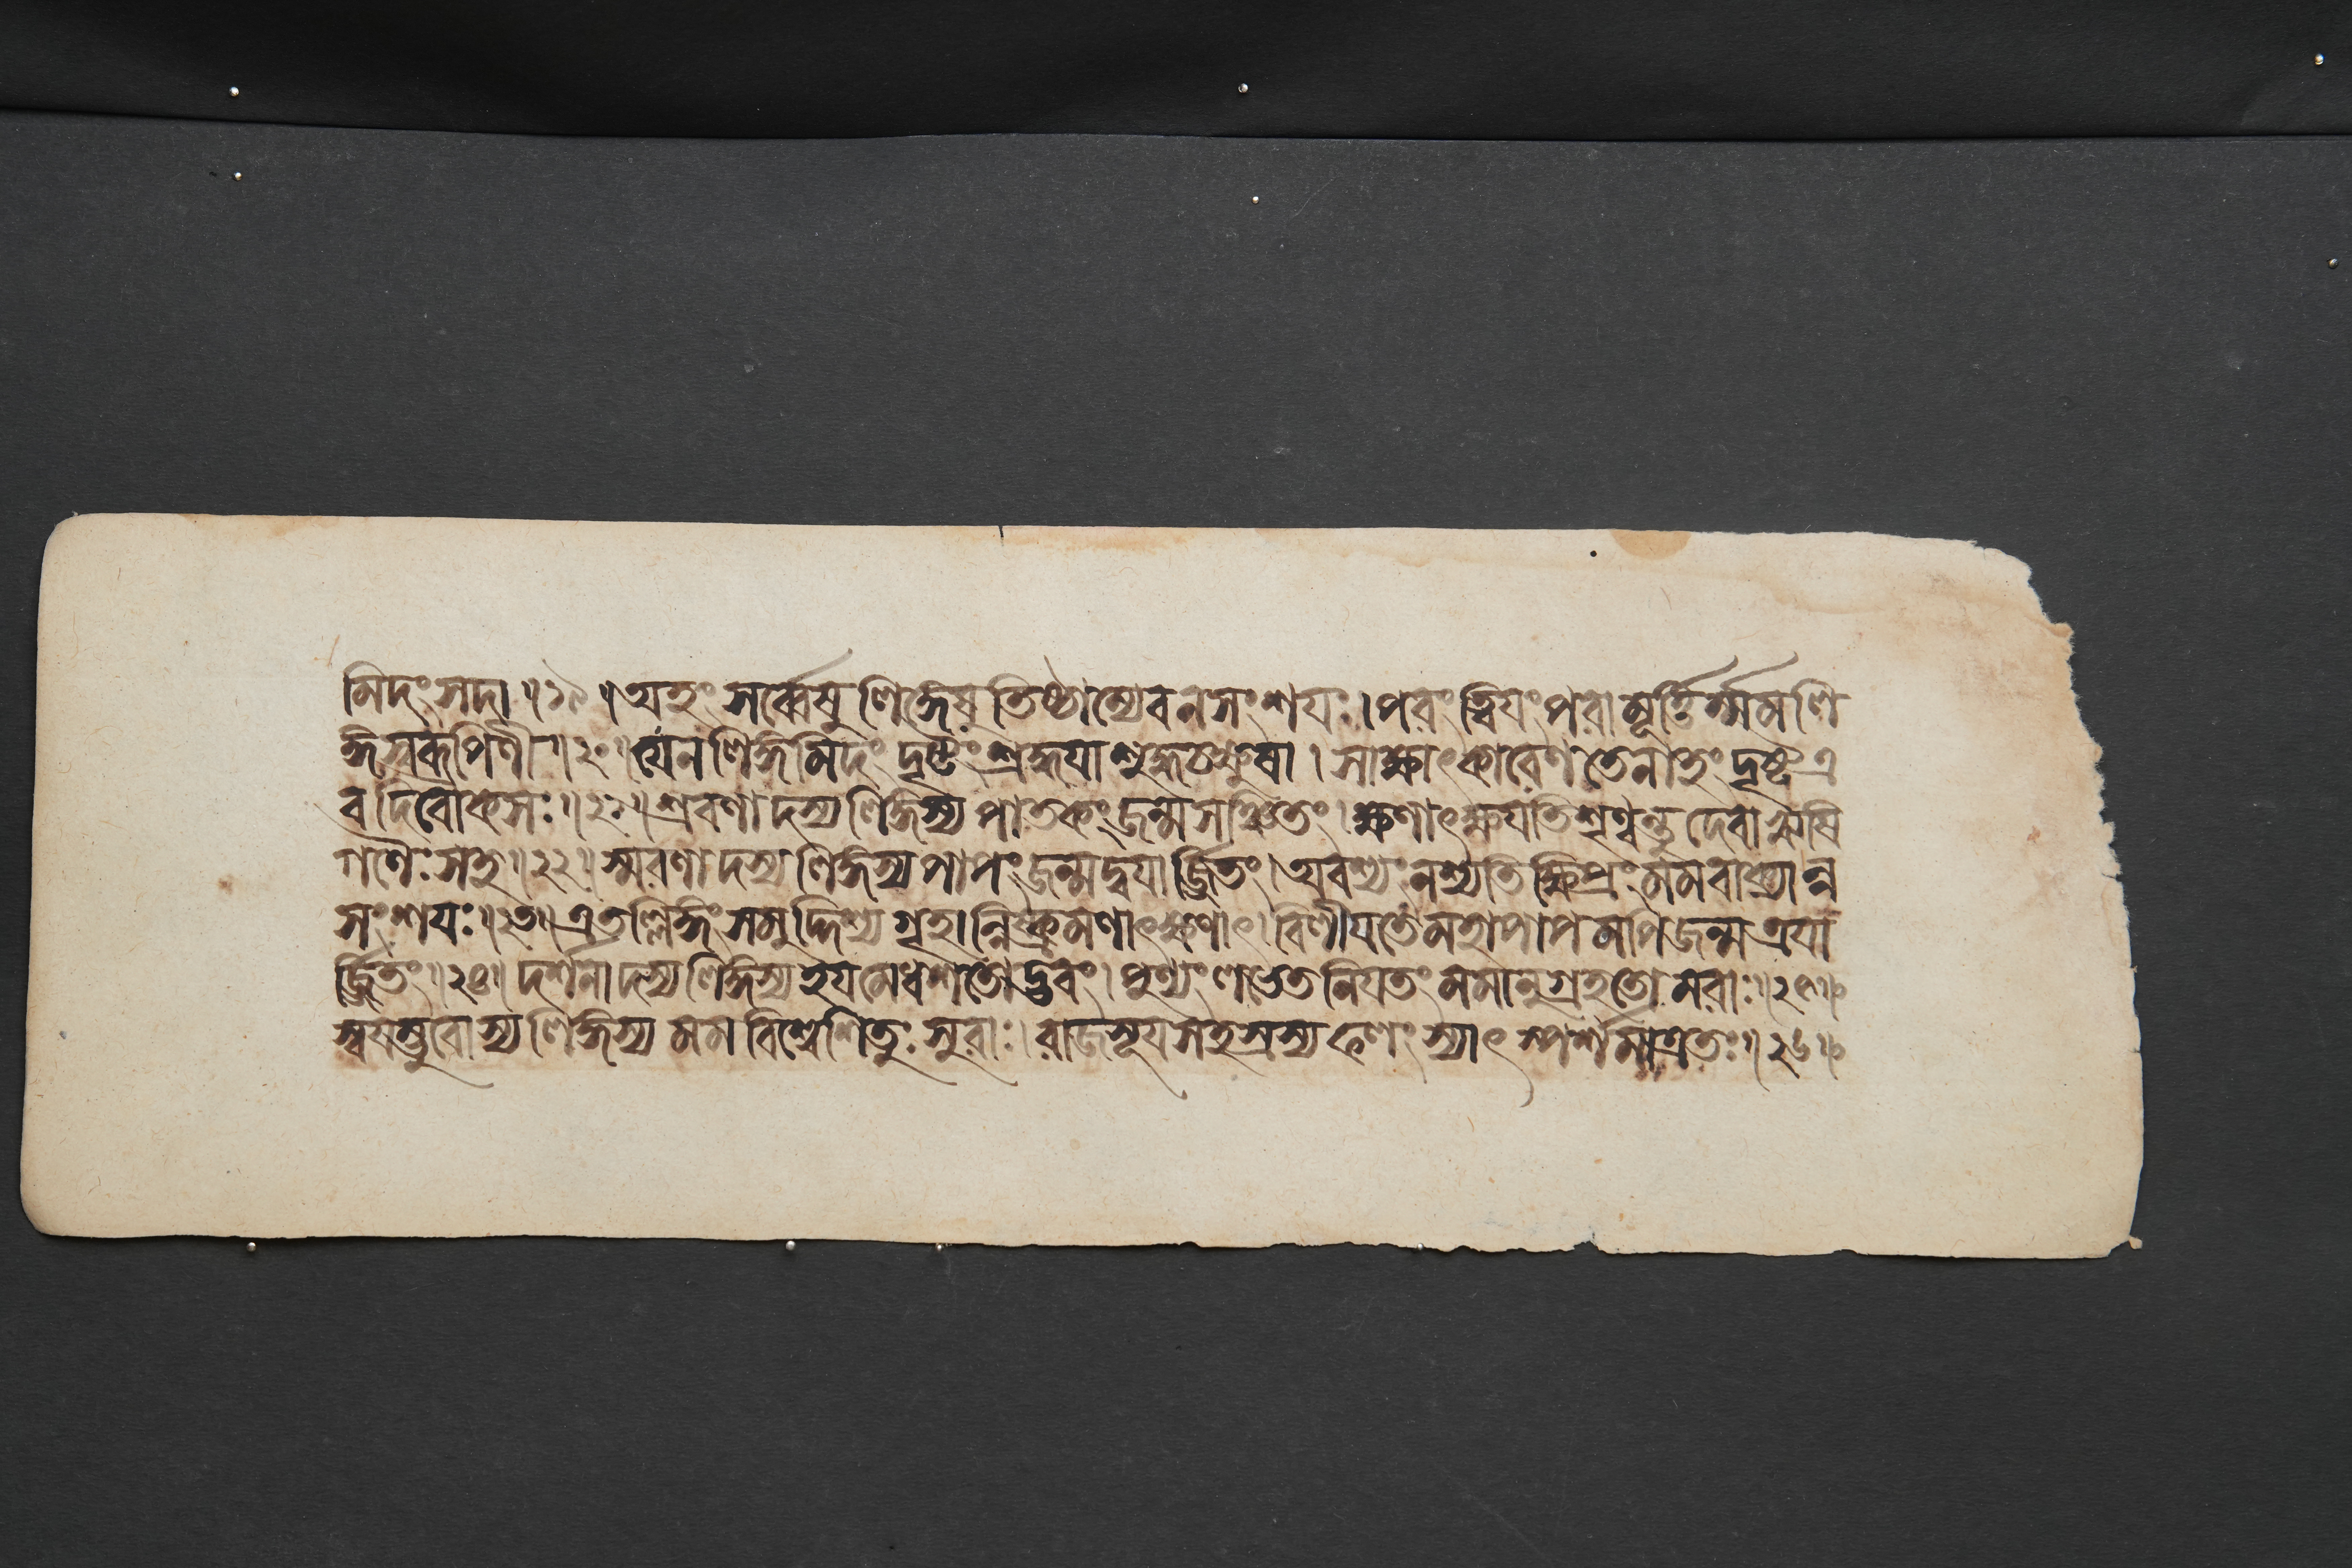 মিদং সদা ॥ ১৯ ॥ অহং সর্ব্বেষু লিঙ্গেষু তিষ্ঠাম্যেব ন সংশয়ঃ । পরং ত্বিয়ং পরা মূর্ত্তির্ম্মম লি
ঙ্গস্বরূপিণী ॥ ২০ ॥ যেন লিঙ্গমিদং দৃষ্টং শ্রদ্ধয়া শুদ্ধচক্ষুষা । সাক্ষাৎকারেণ তেনাহং দৃষ্ট এ
ব দিবৌকসঃ ॥ ২১ ॥ শ্রবণাদস্য লিঙ্গস্য পাতকং জন্মসঞ্চিতং । ক্ষণাৎ ক্ষয়তি শৃণ্বন্তু দেবা ঋষি
গণৈঃ সহ ॥ ২২ ॥ স্মরণাদস্য লিঙ্গস্য পাপং জন্মদ্বয়ার্জ্জিতং । অবশ্যং নশ্যতি ক্ষিপ্রং মম বাক্যান্ন
সংশয়ঃ ॥ ২৩ ॥ এতল্লিঙ্গং সমুদ্দিশ্য গৃহান্নিষ্ক্রমণাৎ ক্ষণাৎ । বিলীয়তে মহাপাপমপি জন্মত্রয়া
র্জ্জিতং ॥ ২৪ ॥ দর্শনাদস্য লিঙ্গস্য হয়মেধশতোদ্ভবং । পুণ্যং লভেত নিয়তং মমানুগ্রহতোমরাঃ ॥ ২৫ ॥
স্বয়ম্ভুবোস্য লিঙ্গস্য মম বিশ্বেশিতুঃ সুরাঃ । রাজসূয়সহস্রস্য ফলং স্যাৎ স্পর্শমাত্রতঃ ॥ ২৬ ॥